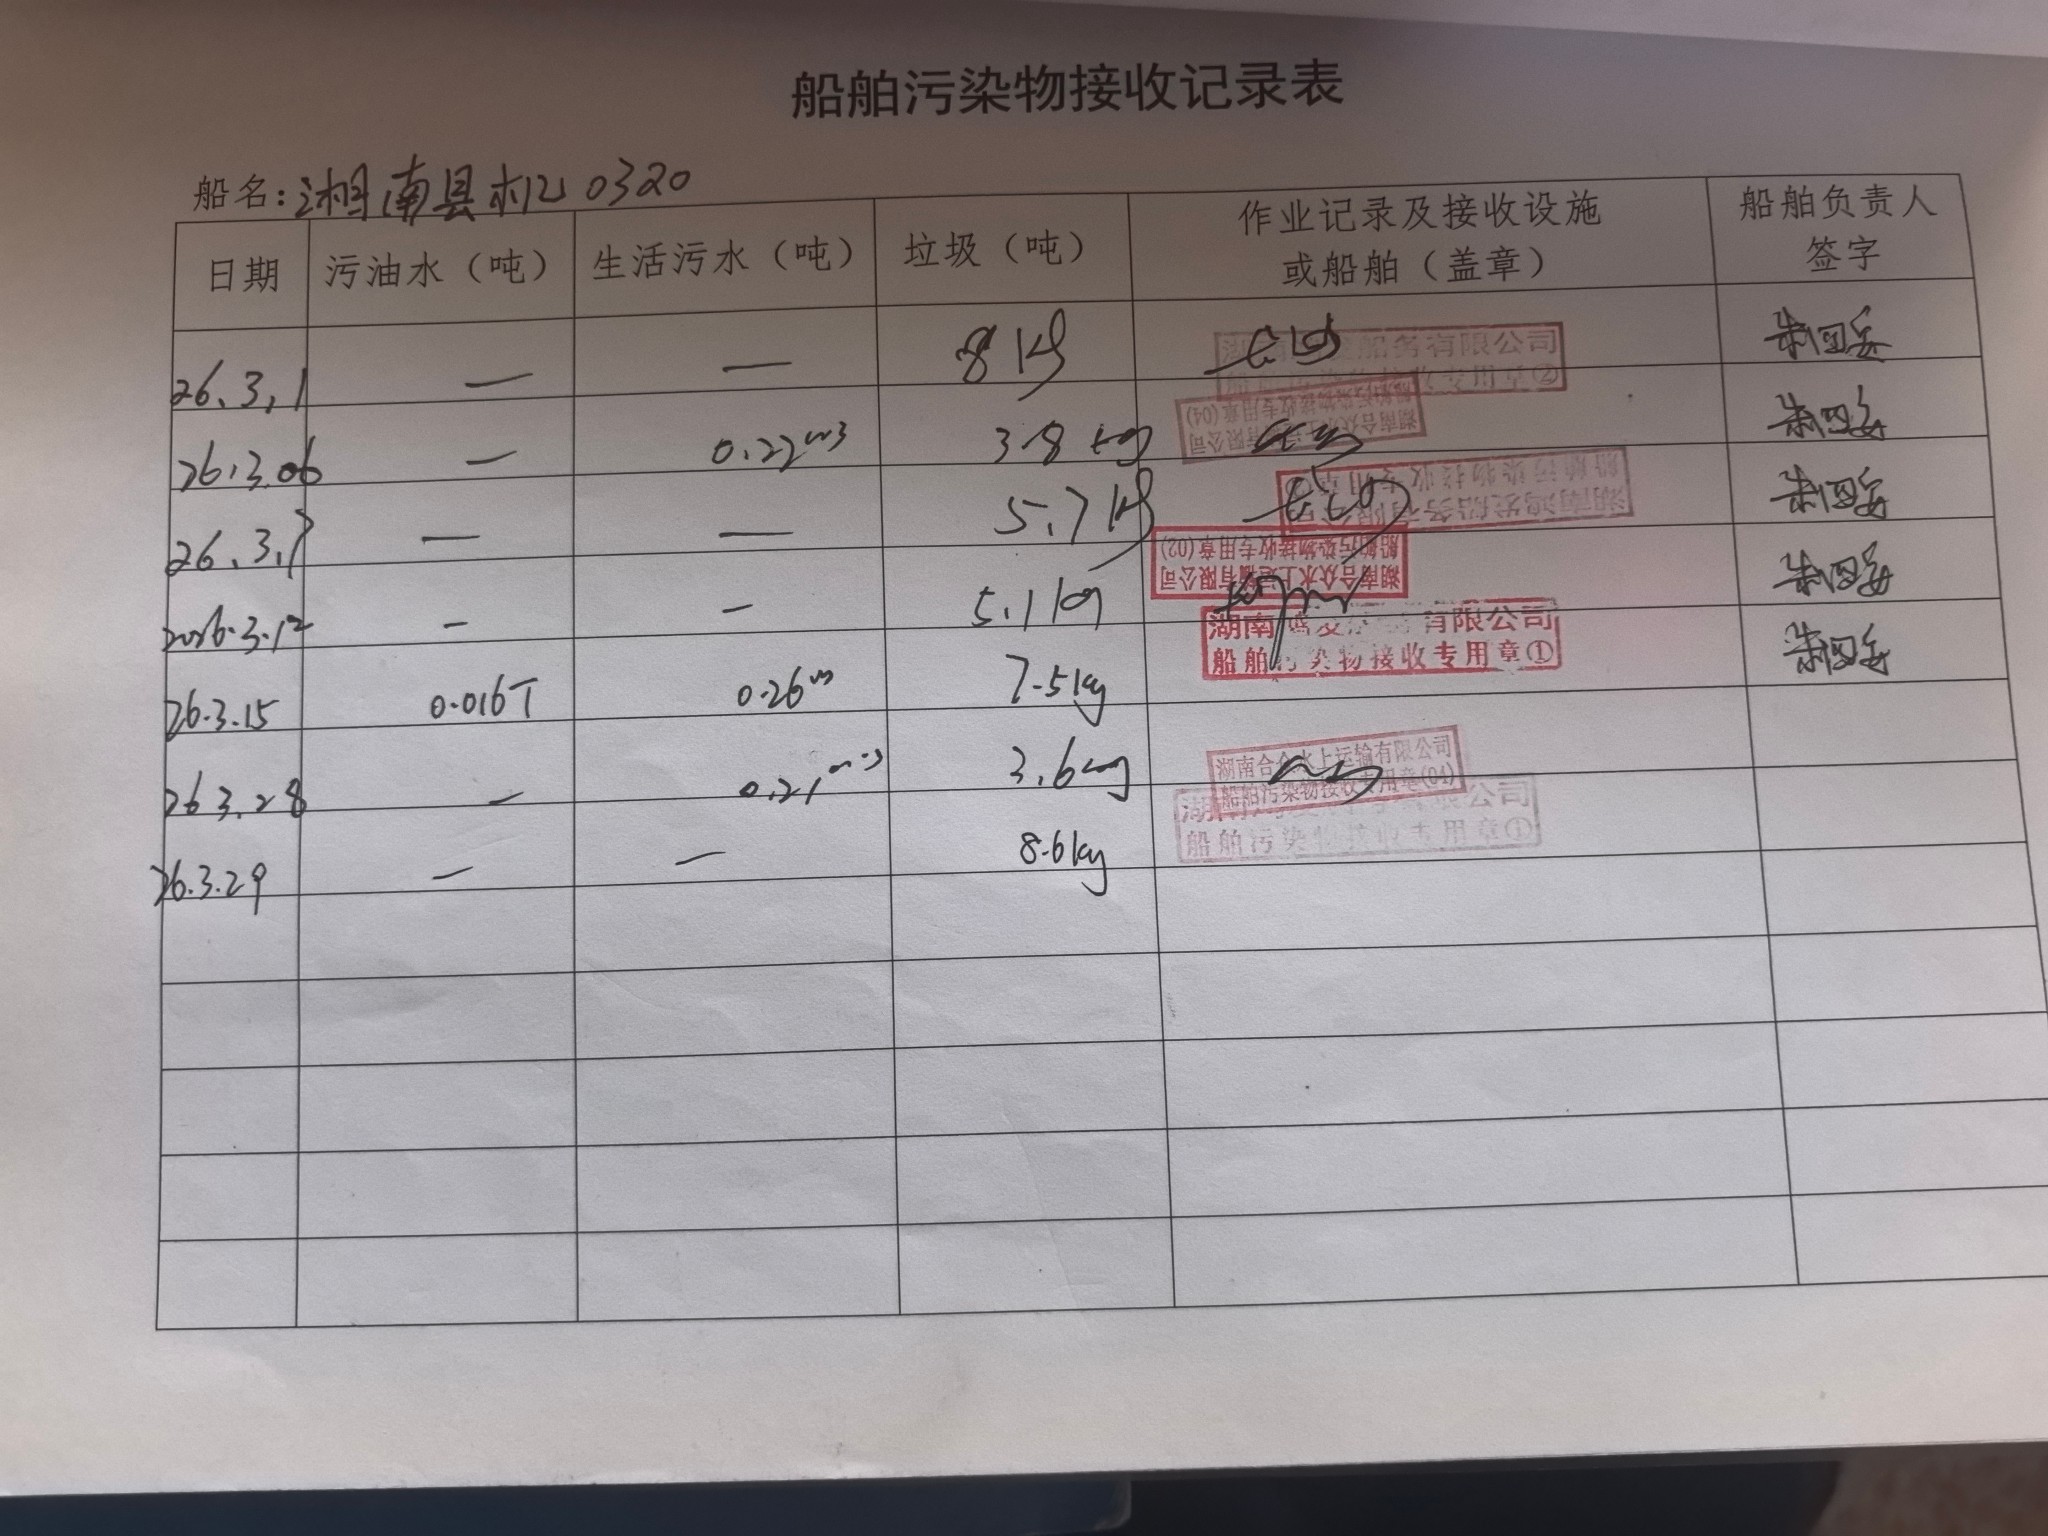 船舶污染物接收记录表
船名:湘南县机0320
日期 污油水（吨） 生活污水（吨） 垃圾（吨） 作业记录及接收设施或船舶（盖章） 船舶负责人签字
26.3.1 — — 8kg 船务有限公司 专用章②
26.3.06 — 0.22m3 3.8kg 湖南合众水上运输有限公司 船舶污染物接收专用章(04)
26.3.7 — — 5.7kg 湖南鸿发船务有限公司 船舶污染物接收专用章
2026.3.12 - - 5.1kg 湖南合众水上运输有限公司 船舶污染物接收专用章(02)
26.3.15 0.016T 0.26m 7.5kg 湖南鸿发 有限公司 船舶污染物接收专用章①
26.3.28 — 0.21m3 3.6kg 湖南合众水上运输有限公司 船舶污染物接收专用章(04)
26.3.29 — — 8.6kg 限公司 船舶污染物接收专用章①